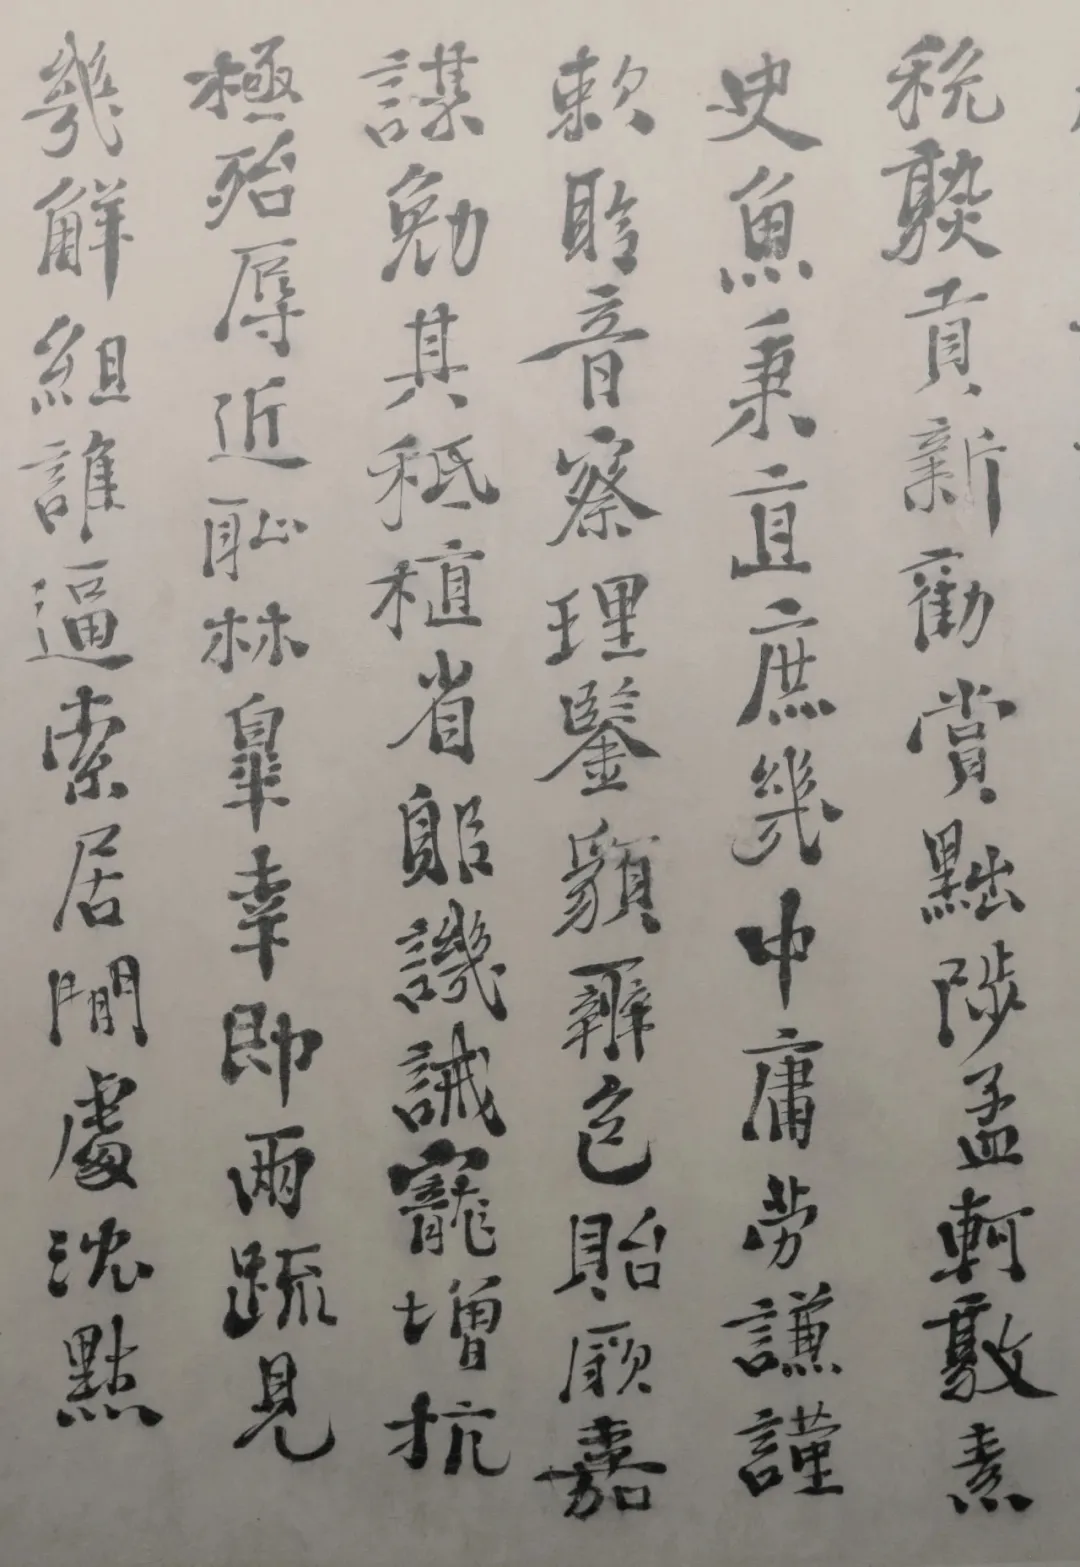 税熟貢新勸賞黜陟孟軻敦素
史魚秉直庶幾中庸勞謙謹
敕聆音察理鑒貌辨色貽厥嘉
謀勉其祗植省躳譏誡寵增抗
極殆辱近耻林皐幸即兩疏見
幾解組誰逼索居閒處沈默